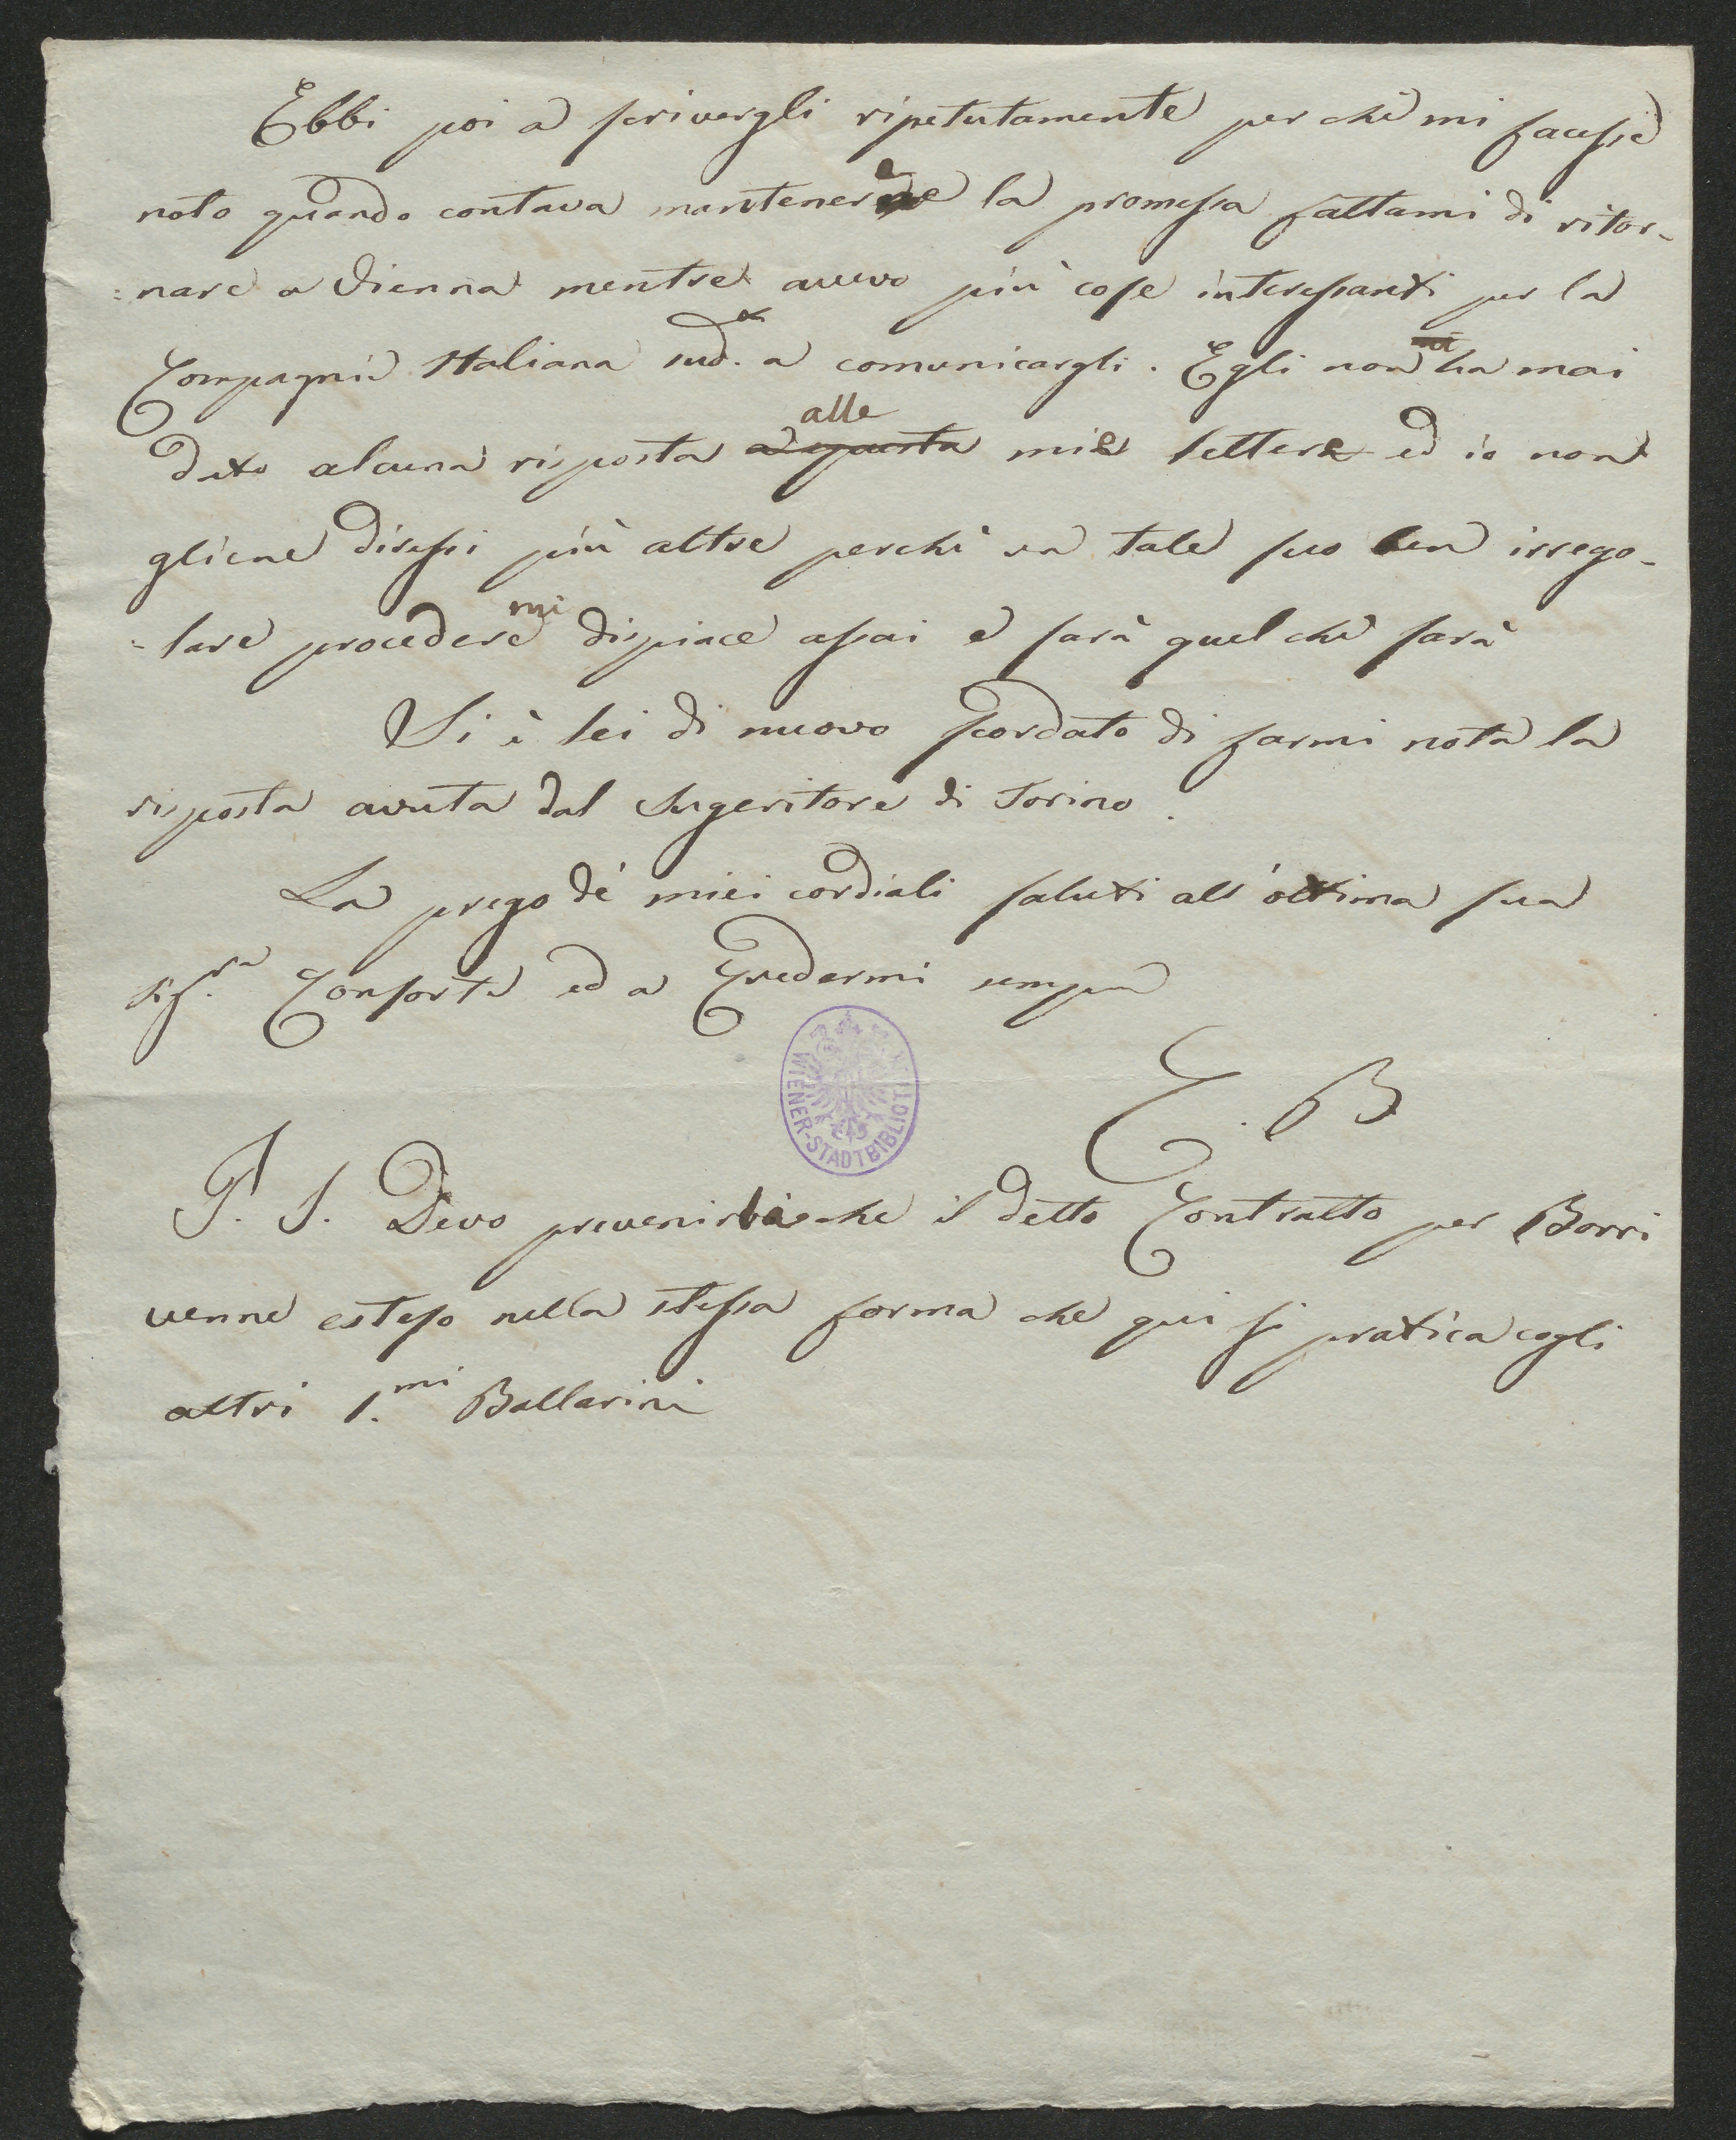 Ebbi poi a scrivergli ripetutamente perchè mi facesse
noto quando contava mantenere la promessa fattami di ritor-
=nare a Vienna mentre avevo più cose interessanti per la
Compagnia Italiana sud.a a comunicargli. Egli non ha mai
dato alcuna risposta alle mie lettere ed io non
gliene diressi più altre perchè un tale suo ben irrego-
=lare procedere mi dispiace assai e sarà quel che sarà
Si è lei di nuovo scordato di farmi nota la
risposta avuta dal Sugeritore di Torino.
La prego de' miei cordiali saluti all' ottima sua
Sig.ra Consorte ed a Credermi sempre
E. B
WIENER-STADTBIBLIOTHEK
P. S. Devo prevenirla che il detto Contratto per Borri
venne esteso nella stessa forma che qui si pratica cogli
altri 1.mi Ballarini